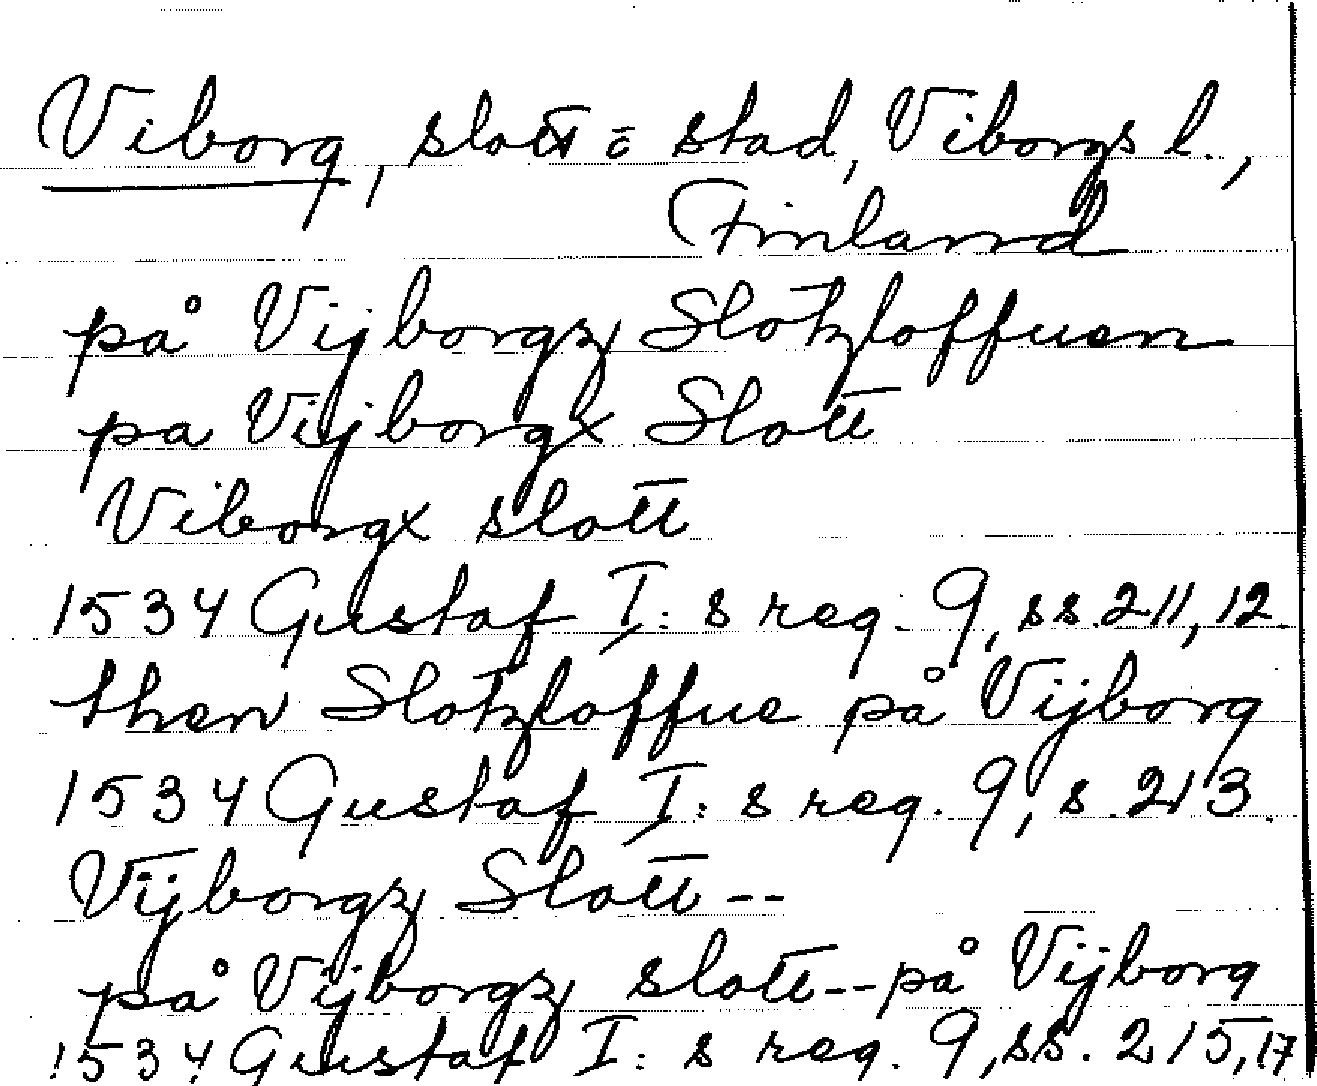 Viborg, slott o stad, Viborgs l.,
Finland
på Vijborgz Slotzloffuen
pa Vijborgx Slott
Viborgx slott
1534 Gustaf I:s reg. 9, ss. 211, 12.
then Slotzloffue på Vijborg
1534 Gustaf I:s reg. 9, s. 213.
Vijborgz Slott --
på Vijborgz slott -- på Vijborg
1534 Gustaf I:s reg. 9, ss. 215, 17